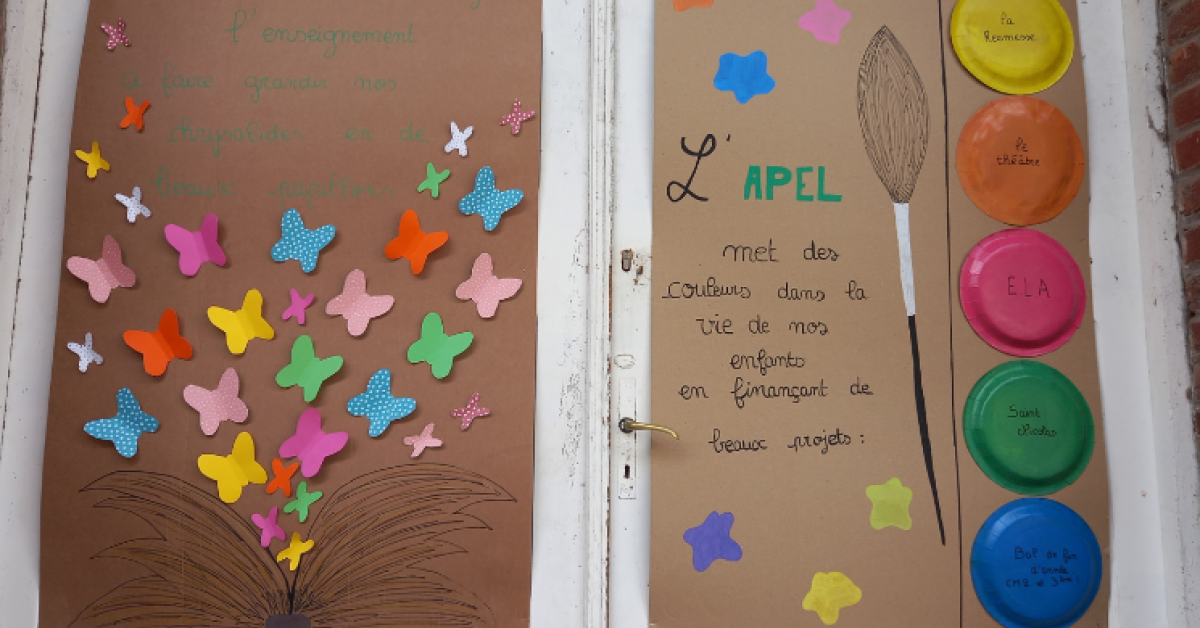 l'enseignement
à faire grandir nos
chrysalides en de
beaux papillons
L'APEL
met des
couleurs dans la
vie de nos
enfants
en finançant de
beaux projets :
la
Kermesse
le
théâtre
ELA
Saint
Nicolas
Bal de fin
d'année
CM2 et 3ème !